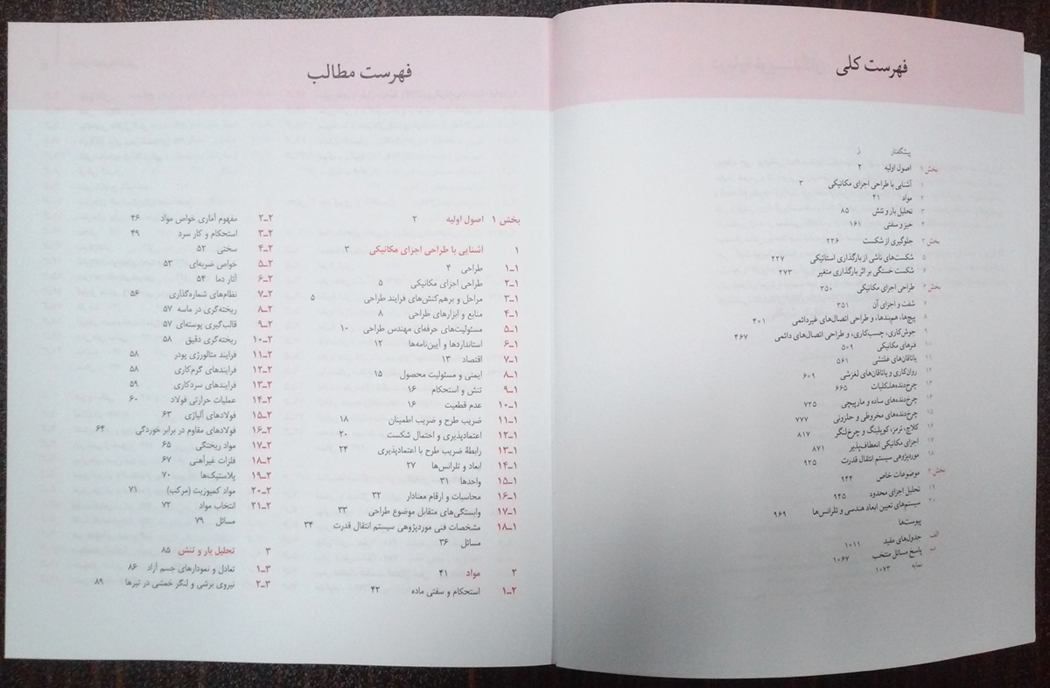 فهرست کلی
پیشگفتار ز
بخش ۱ اصول اولیه ۲
۱ آشنایی با طراحی اجزای مکانیکی ۳
۲ مواد ۴۱
۳ تحلیل بار و تنش ۸۵
۴ خیز و سفتی ۱۶۱
بخش ۲ جلوگیری از شکست ۲۲۶
۵ شکست‌های ناشی از بارگذاری استاتیکی ۲۲۷
۶ شکست خستگی بر اثر بارگذاری متغیر ۲۷۳
بخش ۳ طراحی اجزای مکانیکی ۳۵۰
۷ شفت و اجزای آن ۳۵۱
۸ پیچ‌ها، هم‌بندها، و طراحی اتصال‌های غیردائمی ۴۰۱
۹ جوش‌کاری، چسب‌کاری، و طراحی اتصال‌های دائمی ۴۶۷
۱۰ فنرهای مکانیکی ۵۰۹
۱۱ یاتاقان‌های غلتشی ۵۶۱
۱۲ روان‌کاری و یاتاقان‌های لغزشی ۶۰۹
۱۳ چرخ‌دنده‌ها_کلیات ۶۶۵
۱۴ چرخ‌دنده‌های ساده و مارپیچی ۷۲۵
۱۵ چرخ‌دنده‌های مخروطی و حلزونی ۷۷۷
۱۶ کلاچ، ترمز، کوپلینگ و چرخ‌لنگر ۸۱۷
۱۷ اجزای مکانیکی انعطاف‌پذیر ۸۷۱
۱۸ موردپژوهی سیستم انتقال قدرت ۹۲۵
بخش ۴ موضوعات خاص ۹۴۴
۱۹ تحلیل اجزای محدود ۹۴۵
۲۰ سیستم‌های تعیین ابعاد هندسی و تلرانس‌ها ۹۶۹
پیوست‌ها
الف جدول‌های مفید ۱۰۱۱
ب پاسخ مسائل منتخب ۱۰۶۷
نمایه ۱۰۷۳
فهرست مطالب
بخش ۱ اصول اولیه ۲
۱ آشنایی با طراحی اجزای مکانیکی ۳
۱_۱ طراحی ۴
۲_۱ طراحی اجزای مکانیکی ۵
۳_۱ مراحل و برهم‌کنش‌های فرایند طراحی ۵
۴_۱ منابع و ابزارهای طراحی ۸
۵_۱ مسئولیت‌های حرفه‌ای مهندس طراحی ۱۰
۶_۱ استانداردها و آیین‌نامه‌ها ۱۲
۷_۱ اقتصاد ۱۳
۸_۱ ایمنی و مسئولیت محصول ۱۵
۹_۱ تنش و استحکام ۱۶
۱۰_۱ عدم قطعیت ۱۶
۱۱_۱ ضریب طرح و ضریب اطمینان ۱۸
۱۲_۱ اعتمادپذیری و احتمال شکست ۲۰
۱۳_۱ رابطهٔ ضریب طرح با اعتمادپذیری ۲۴
۱۴_۱ ابعاد و تلرانس‌ها ۲۷
۱۵_۱ واحدها ۳۱
۱۶_۱ محاسبات و ارقام معنادار ۳۲
۱۷_۱ وابستگی‌های متقابل موضوع طراحی ۳۳
۱۸_۱ مشخصات فنی موردپژوهی سیستم انتقال قدرت ۳۴
مسائل ۳۶
۲ مواد ۴۱
۱_۲ استحکام و سفتی ماده ۴۲
۲_۲ مفهوم آماری خواص مواد ۴۶
۳_۲ استحکام و کار سرد ۴۹
۴_۲ سختی ۵۲
۵_۲ خواص ضربه‌ای ۵۳
۶_۲ آثار دما ۵۴
۷_۲ نظام‌های شماره‌گذاری ۵۶
۸_۲ ریخته‌گری در ماسه ۵۷
۹_۲ قالب‌گیری پوسته‌ای ۵۷
۱۰_۲ ریخته‌گری دقیق ۵۸
۱۱_۲ فرایند متالورژی پودر ۵۸
۱۲_۲ فرایندهای گرم‌کاری ۵۸
۱۳_۲ فرایندهای سردکاری ۵۹
۱۴_۲ عملیات حرارتی فولاد ۶۰
۱۵_۲ فولادهای آلیاژی ۶۳
۱۶_۲ فولادهای مقاوم در برابر خوردگی ۶۴
۱۷_۲ مواد ریختگی ۶۵
۱۸_۲ فلزات غیرآهنی ۶۷
۱۹_۲ پلاستیک‌ها ۷۰
۲۰_۲ مواد کمپوزیت (مرکب) ۷۱
۲۱_۲ انتخاب مواد ۷۲
مسائل ۷۹
۳ تحلیل بار و تنش ۸۵
۱_۳ تعادل و نمودارهای جسم آزاد ۸۶
۲_۳ نیروی برشی و لنگر خمشی در تیرها ۸۹